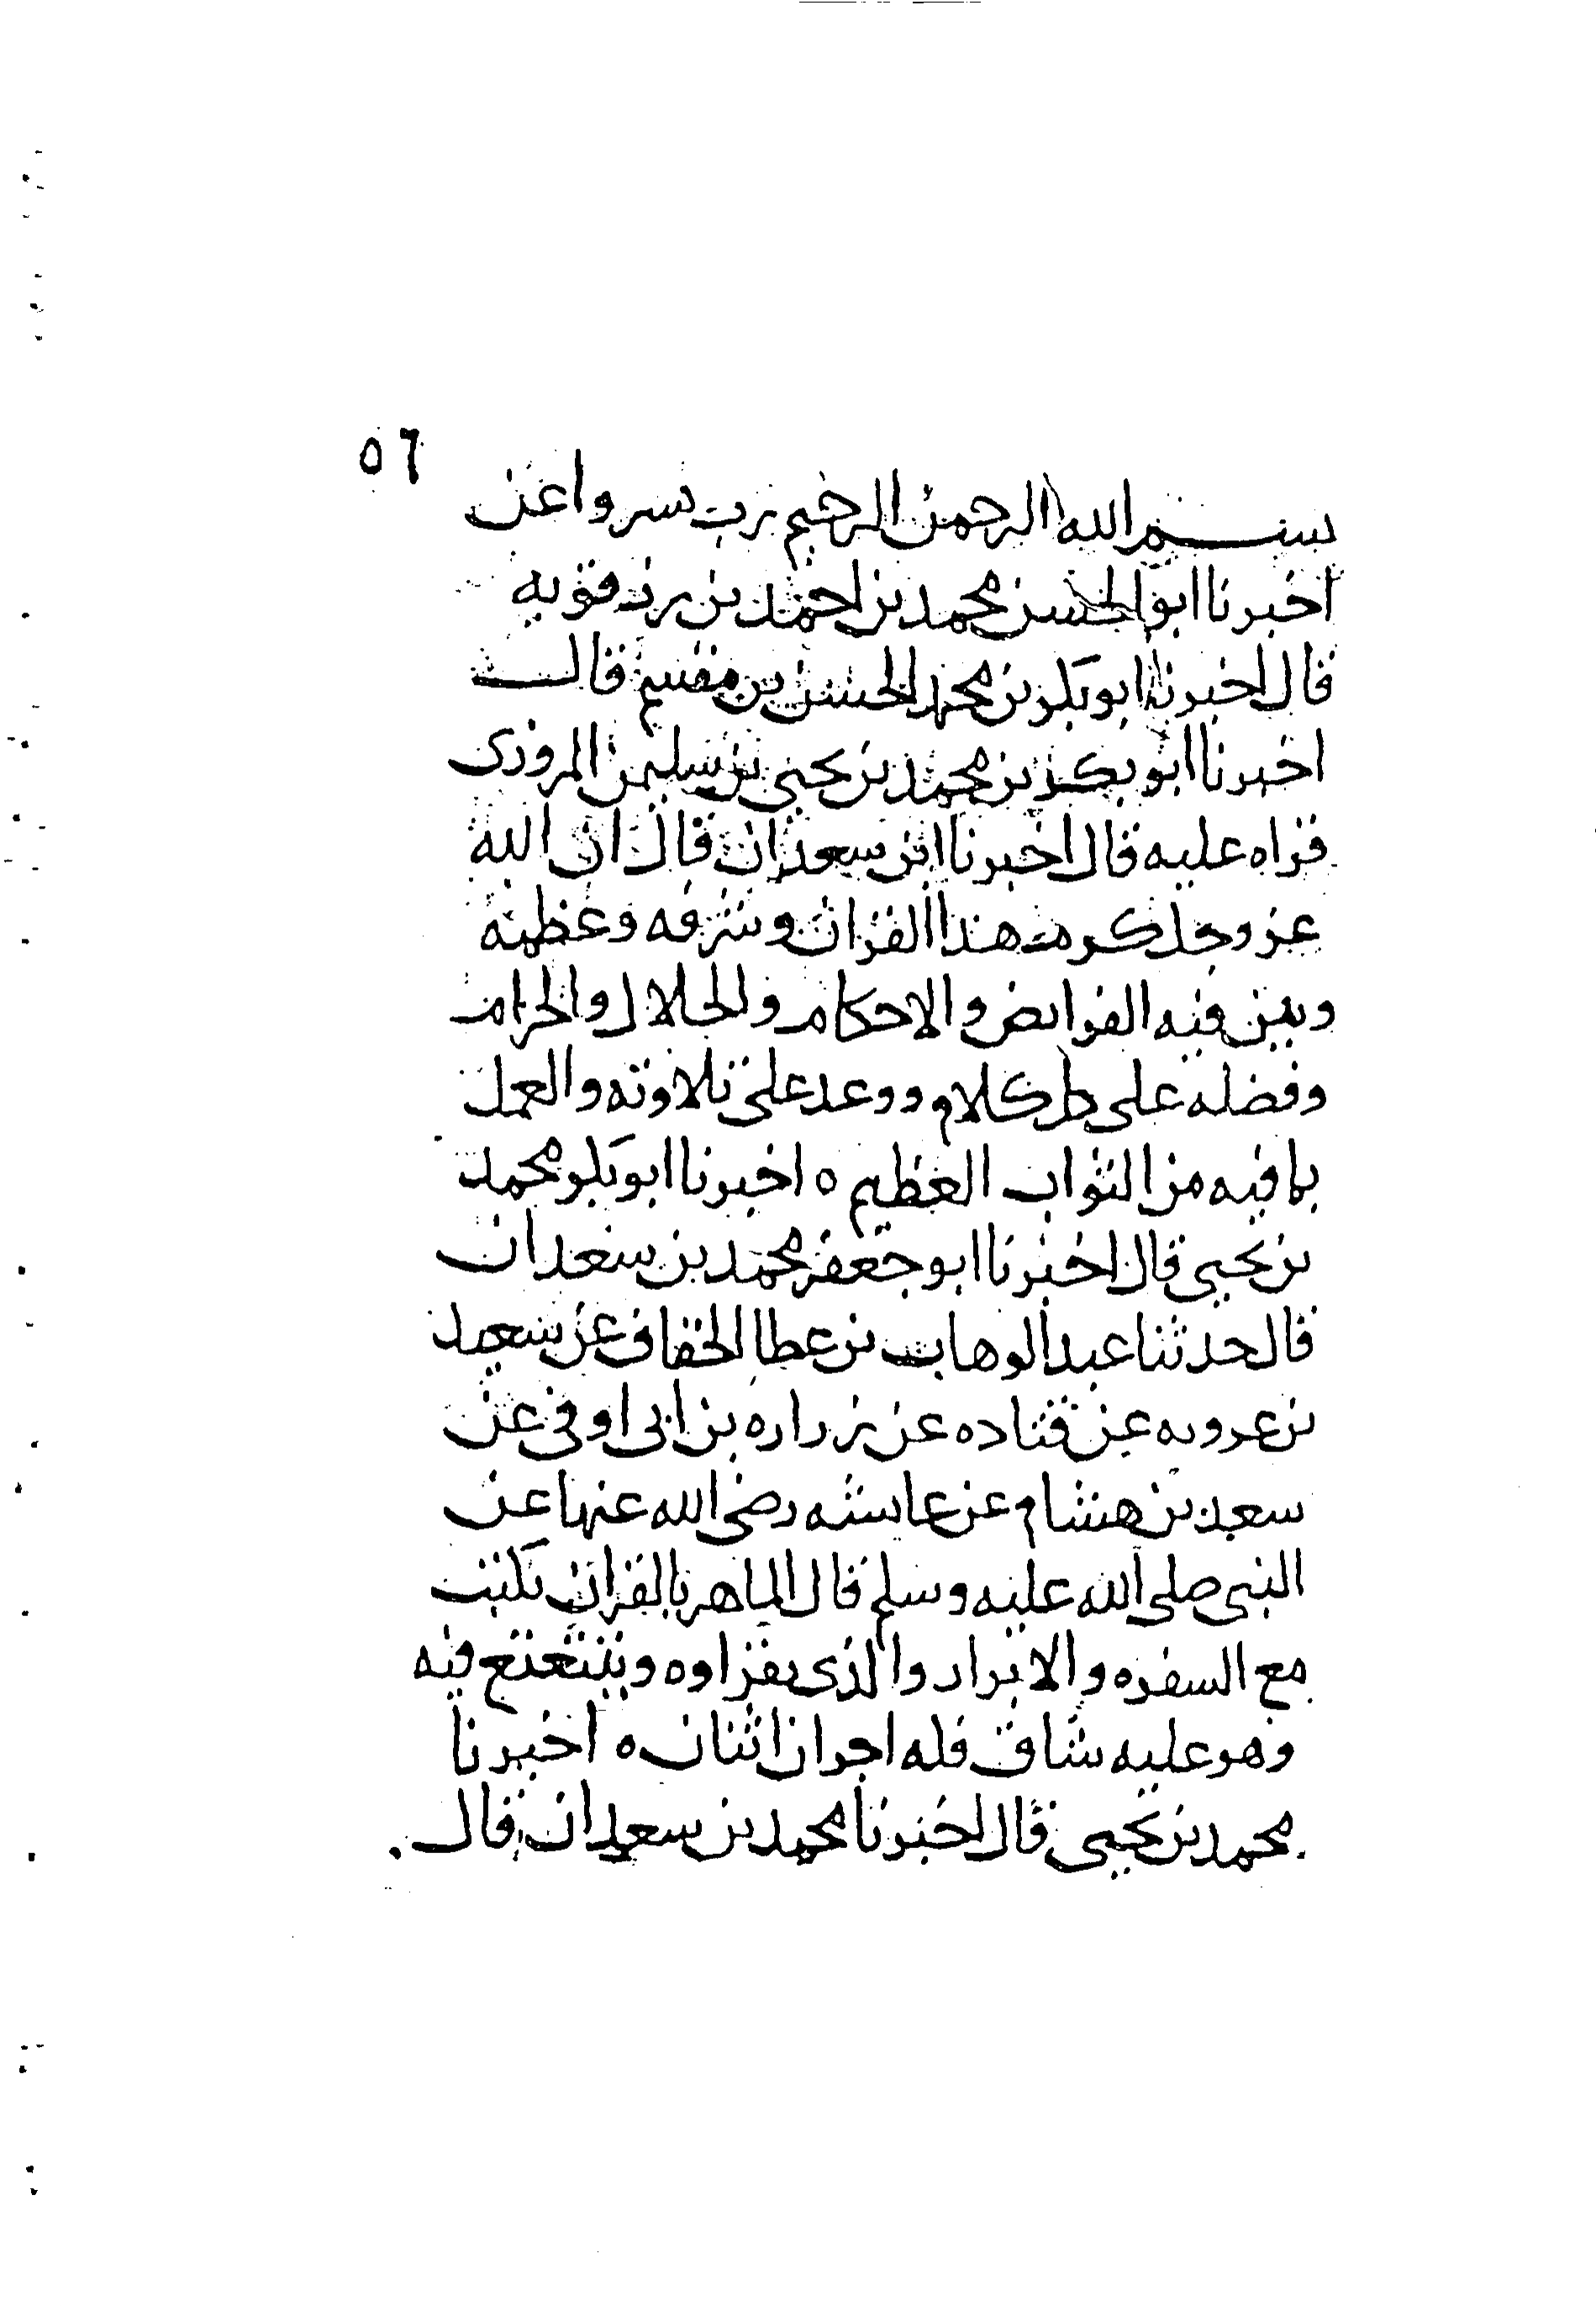 ٥٦
بسم الله الرحمن الرحيم رب يسر واعن
اخبرنا ابو الحسن محمد بن احمد بن رزقويه
قال اخبرنا ابو بكر بن محمد الحسن بن مقسم قال
اخبرنا ابو بكر بن محمد بن يحيى بن سليمن المروزى
قراه عليه قال اخبرنا ابن سعدان قال ان الله
عز وجل كرم هذا القران وشرفه وعظمه
وبين فيه الفرايض والاحكام والحلال والحرام
وفضله على كل كلام ووعد على تلاوته والعمل
بما فيه من الثواب العظيم ه اخبرنا ابو بكر محمد
بن يحيى قال اخبرنا ابو جعفر محمد بن سعدان
قال حدثنا عبد الوهاب بن عطا الخفاف عن سعيد
بن عروبه عن قتاده عن زراره بن ابى اوفى عن
سعد بن هشام عن عايشه رضى الله عنها عن
النبى صلى الله عليه وسلم قال الماهر بالقران يكتب
مع السفره والابرار والذى يقراوه ويتتعتع فيه
وهو عليه شاق فله اجران اثنان ه اخبرنا
محمد بن يحيى قال اخبرنا محمد بن سعدان قال